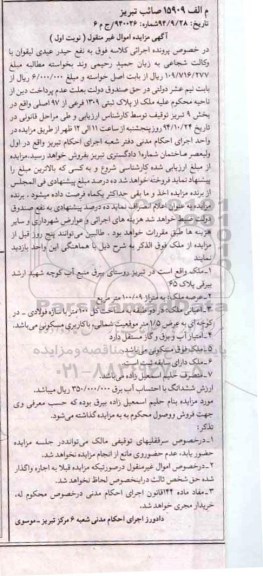 م الف ۱۵۹۰۹ صائب تبریز
تاریخ: ۹۴/۹/۲۸ شماره ۹۴۰۰۲۶/ج م ۶
آگهی مزایده اموال غیر منقول ( نوبت اول )
در خصوص پرونده اجرائی کلاسه فوق به نفع حیدر عبدی لیقوان با
وکالت شجاعی به زیان حمید رحیمی وند بخواسته مطالبه مبلغ
۱۰۹/۷۱۶/۲۷۷ ریال از بابت اصل خواسته و مبلغ ۶/۰۰۰/۰۰۰ ریال از
بابت نیم عشر دولتی در حق صندوق دولت بعلت عدم پرداخت دین از
ناحیه محکوم علیه ملک از پلاک ثبتی ۱۳۰۹ فرعی از ۹۷ اصلی واقع در
بخش ۹ تبریز توقیف توسط کارشناس ارزیابی و طی مراحل قانونی در
تاریخ ۹۴/۱۰/۲۴ روز پنجشنبه از ساعت ۱۱ الی ۱۲ ظهر از طریق مزایده در
واحد اجرای احکام مدنی دفتر شعبه اجرای احکام تبریز واقع در اول
ولیعصر ساختمان شماره ۱ دادگستری تبریز بفروش خواهد رسید. مزایده
از مبلغ ارزیابی شده کارشناس شروع و به کسی که بالاترین مبلغ را
پیشنهاد نماید فروخته خواهد شد ده درصد مبلغ پیشنهادی فی المجلس
از برنده مزایده اخذ و ما بقی حداکثر یکماه فرصت داده میشود . برنده
مزایده به عنوان اعلام انصراف نماید ده درصد پیشنهادی به نفع صندوق
دولت ضبط خواهد شد هزینه های اجرائی و عوارض شهرداری و سایر
هزینه ها طبق مقررات خواهد بود . طالبین می توانند پنج روز قبل از
مزایده از ملک فوق الذکر به شرح ذیل با هماهنگی این واحد بازدید
نمایند
۱-ملک واقع است در تبریز روستای بیرق منبع آب کوچه شهید ارشد
بیرقی پلاک ۴۵
۲-عرصه ملک: به متراژ ۱۰۰/۰۸ متر مربع
۳-اعیانی ملک: در دو طبقه به مساحت کل ۱۰۰ متر با سازه فولادی - در
کوچه ای به عرض ۱/۵ متر موقعیت شمالی، با کاربری مسکونی می باشد.
۴-امتیاز آب و برق و گاز مستقل دارد
۵-ملک فوق مسکونی می باشد
۶-ملک دارای سابقه ثبت است
۷-متصرف حلیم اسمعیل زاده می باشد
ارزش ششدانگ با احتساب آب برق ۳۵۰/۰۰۰/۰۰۰ ریال میباشد.
مورد مزایده بنام حلیم اسمعیل زاده بیرق بوده که حسب معرفی وی
جهت فروش و وصول محکوم به به مزایده گذاشته می شود.
تذکر:
۱-درخصوص سرقفلیهای توقیفی مالک می تواند در جلسه مزایده
حضور یابد، عدم حضور وی مانع از انجام مزایده نخواهد شد.
۲-درخصوص اموال غیرمنقول درصورتیکه مزایده قبلا به اجاره واگذار
شده حق شخص ثالث دراینخصوص لحاظ نخواهد شد.
۳-مفاد ماده ۱۴۴ قانون اجرای احکام مدنی درخصوص محکوم له،
خریدار مجری خواهد شد.
دادورز اجرای احکام مدنی شعبه ۶ مرکز تبریز - موسوی